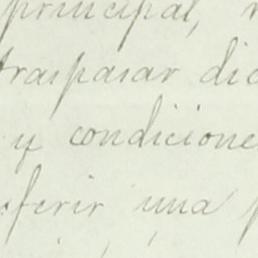 principal,
traspasar dic
y condicione
ferir una